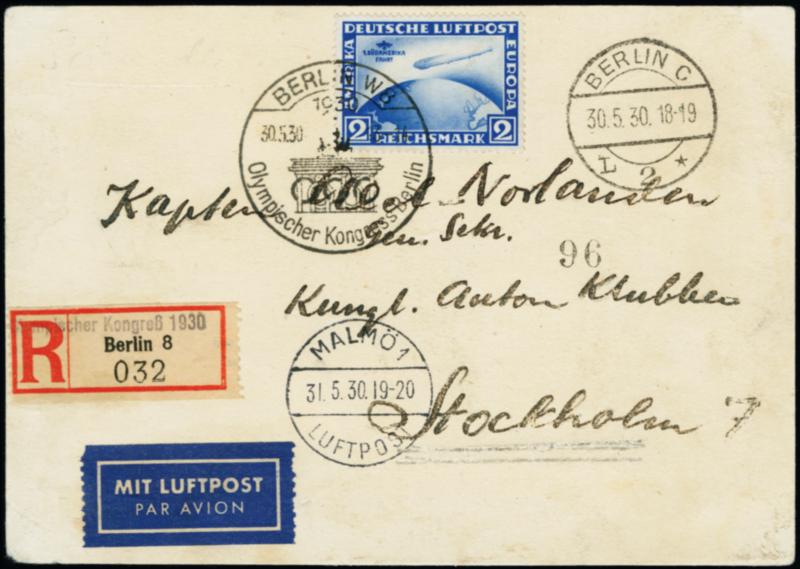 DEUTSCHE LUFTPOST
1.SÜDAMERIKA
FAHRT
EUROPA
2 REICHSMARK 2
BERLIN W8
1930
30.5.30
Olympischer Kongress Berlin
BERLIN C
30.5.30.18-19
L 2 *
Kapten Norlander
Gen. Sekr.
96
Kungl. Klubben
Stockholm 7
Kongreß 1930
R
Berlin 8
032
MALMÖ 1
31.5.30.19-20
LUFTPOST
MIT LUFTPOST
PAR AVION